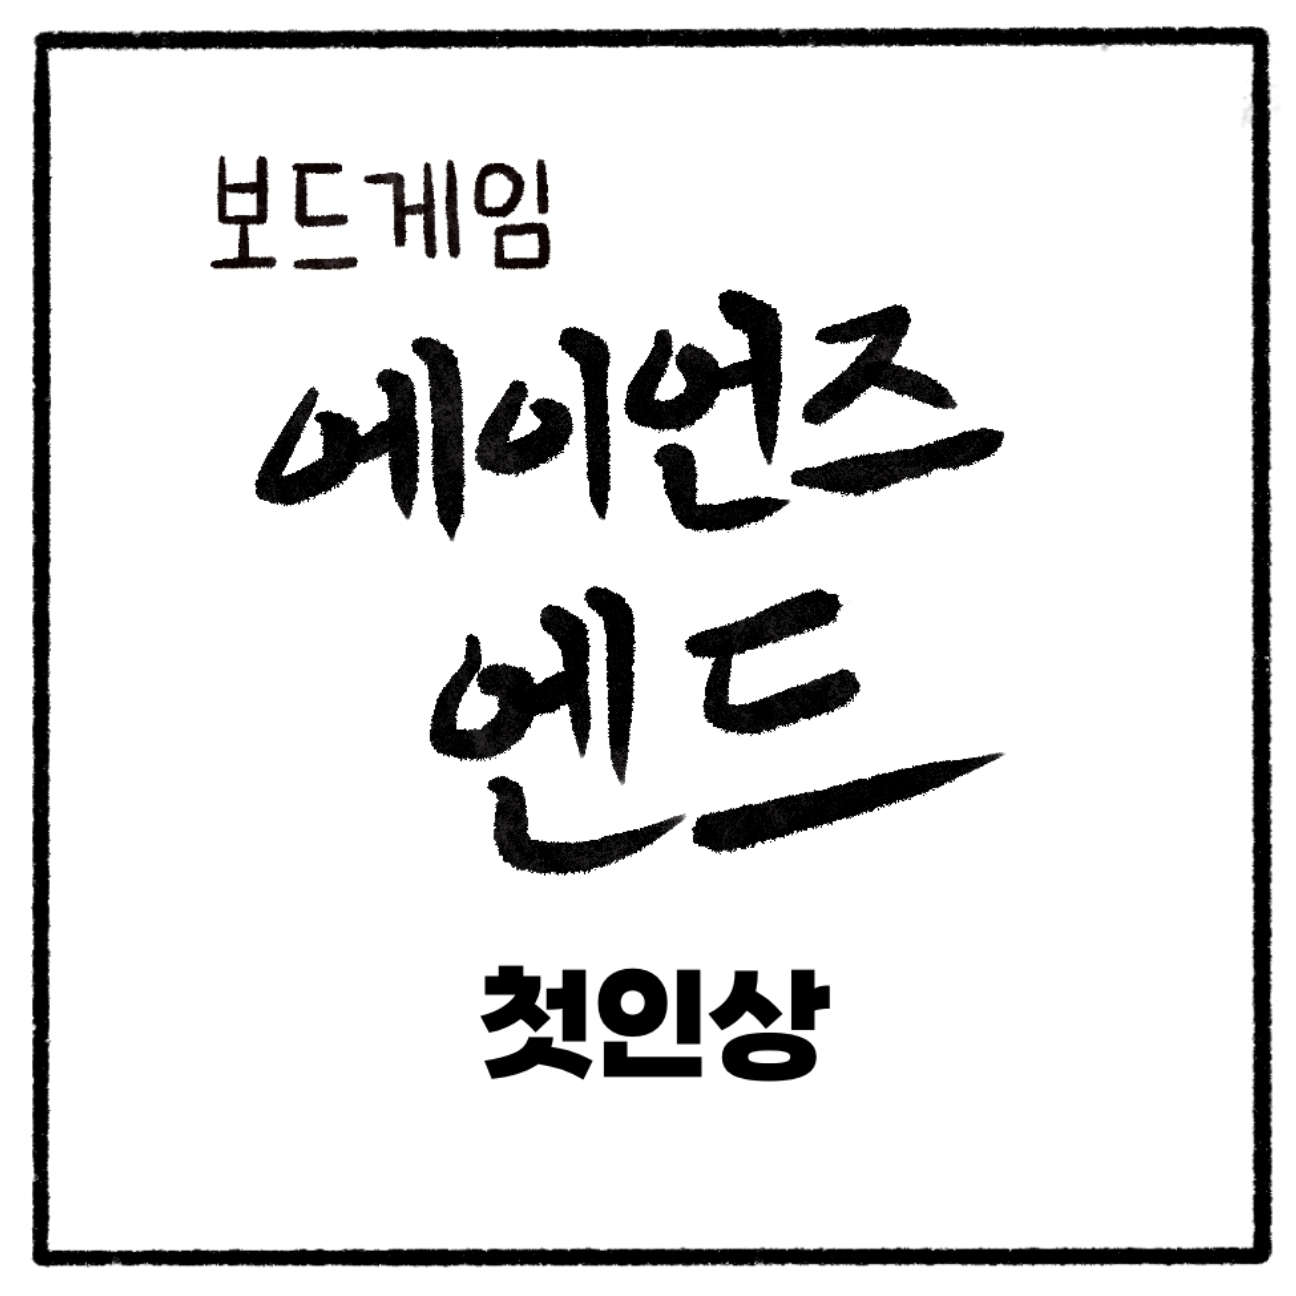 보드게임
에이언즈
엔드
첫인상